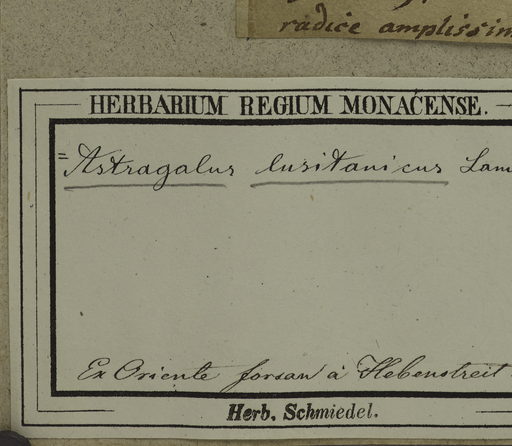 radice amplissim
HERBARIUM REGIUM MONACENSE.
= Astragalus lusitanicus Lam
Ex Oriente forsan à Hebenstreit
Herb. Schmiedel.